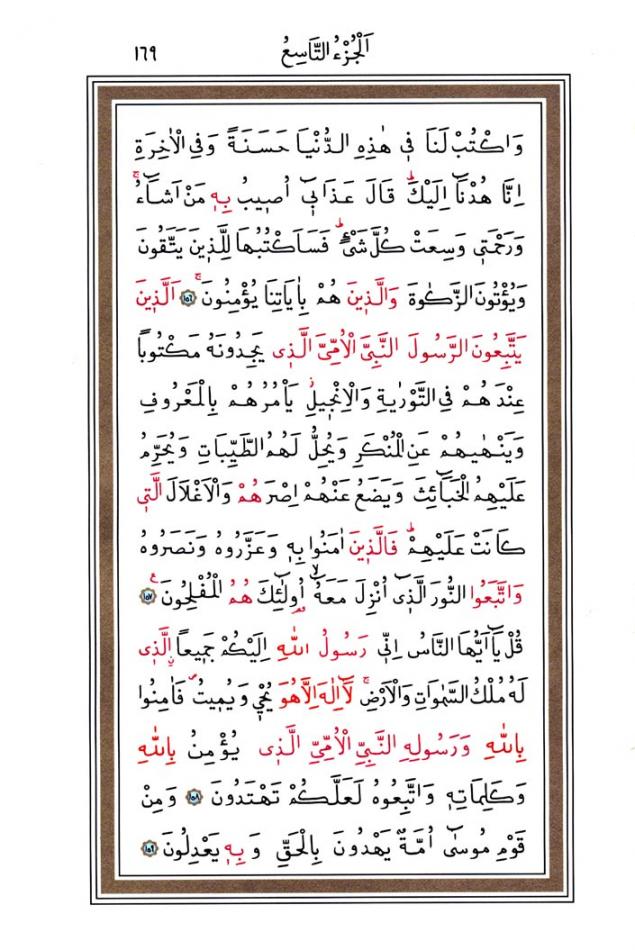 اَلْجُزْءُ التَّاسِعُ ١٦٩
وَاكْتُبْ لَنَا فٖي هٰذِهِ الدُّنْيَا حَسَنَةً وَفِي الْاٰخِرَةِ
اِنَّا هُدْنَٓا اِلَيْكَۜ قَالَ عَذَابٖٓي اُصٖيبُ بِهٖ مَنْ اَشَٓاءُۚ
وَرَحْمَتٖي وَسِعَتْ كُلَّ شَيْءٍۜ فَسَاَكْتُبُهَا لِلَّذٖينَ يَتَّقُونَ
وَيُؤْتُونَ الزَّكٰوةَ وَالَّذٖينَ هُمْ بِاٰيَاتِنَا يُؤْمِنُونَۚ ﴿١٥٦﴾ اَلَّذٖينَ
يَتَّبِعُونَ الرَّسُولَ النَّبِيَّ الْاُمِّيَّ الَّذٖي يَجِدُونَهُ مَكْتُوبًا
عِنْدَهُمْ فِي التَّوْرٰيةِ وَالْاِنْجٖيلِؗ يَاْمُرُهُمْ بِالْمَعْرُوفِ
وَيَنْهٰيهُمْ عَنِ الْمُنْكَرِ وَيُحِلُّ لَهُمُ الطَّيِّبَاتِ وَيُحَرِّمُ
عَلَيْهِمُ الْخَبَٓائِثَ وَيَضَعُ عَنْهُمْ اِصْرَهُمْ وَالْاَغْلَالَ الَّتٖي
كَانَتْ عَلَيْهِمْۜ فَالَّذٖينَ اٰمَنُوا بِهٖ وَعَزَّرُوهُ وَنَصَرُوهُ
وَاتَّبَعُوا النُّورَ الَّذٖٓي اُنْزِلَ مَعَهُٓۙ اُو۬لٰٓئِكَ هُمُ الْمُفْلِحُونَࣖ ﴿١٥٧﴾
قُلْ يَٓا اَيُّهَا النَّاسُ اِنّٖي رَسُولُ اللّٰهِ اِلَيْكُمْ جَمٖيعًاۨ الَّذٖي
لَهُ مُلْكُ السَّمٰوَاتِ وَالْاَرْضِۚ لَٓا اِلٰهَ اِلَّا هُوَ يُحْيٖ وَيُمٖيتُࣕ فَاٰمِنُوا
بِاللّٰهِ وَرَسُولِهِ النَّبِيِّ الْاُمِّيِّ الَّذٖي يُؤْمِنُ بِاللّٰهِ
وَكَلِمَاتِهٖ وَاتَّبِعُوهُ لَعَلَّكُمْ تَهْتَدُونَ ﴿١٥٨﴾ وَمِنْ
قَوْمِ مُوسٰٓى اُمَّةٌ يَهْدُونَ بِالْحَقِّ وَبِهٖ يَعْدِلُونَ ﴿١٥٩﴾